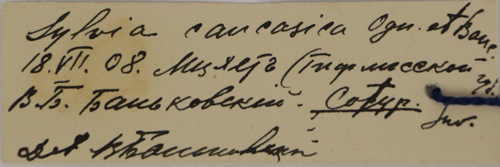 Sylvia caucasica Ogn. et Banc.
18.VII.08. Мцхетъ (Тифлисской гб.
В.Б. Баньковский. Coтyp. Juv.
Det. В Баньковский